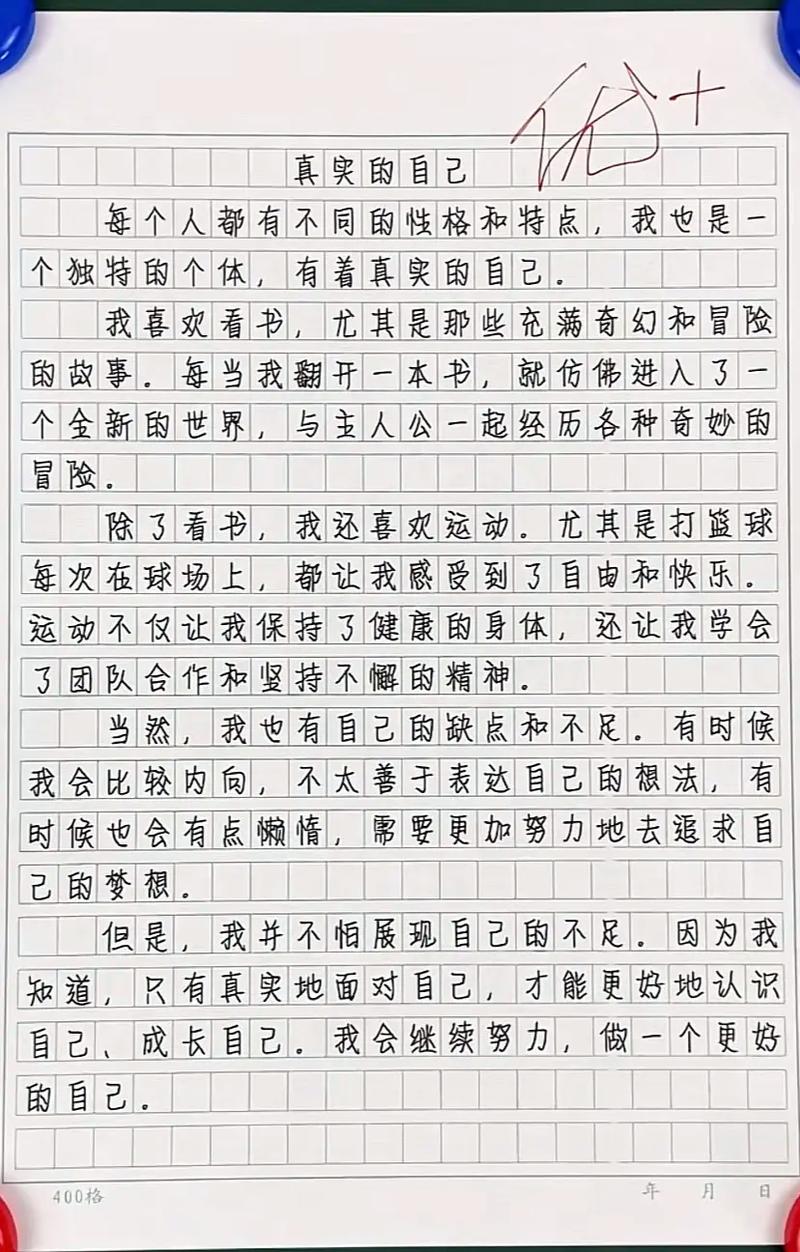 优+
真实的自己
每个人都有不同的性格和特点，我也是一
个独特的个体，有着真实的自己。
我喜欢看书，尤其是那些充满奇幻和冒险
的故事。每当我翻开一本书，就仿佛进入了一
个全新的世界，与主人公一起经历各种奇妙的
冒险。
除了看书，我还喜欢运动。尤其是打篮球
每次在球场上，都让我感受到了自由和快乐。
运动不仅让我保持了健康的身体，还让我学会
了团队合作和坚持不懈的精神。
当然，我也有自己的缺点和不足。有时候
我会比较内向，不太善于表达自己的想法，有
时候也会有点懒惰，需要更加努力地去追求自
己的梦想。
但是，我并不怕展现自己的不足。因为我
知道，只有真实地面对自己，才能更好地认识
自己、成长自己。我会继续努力，做一个更好
的自己。
400格 年 月 日